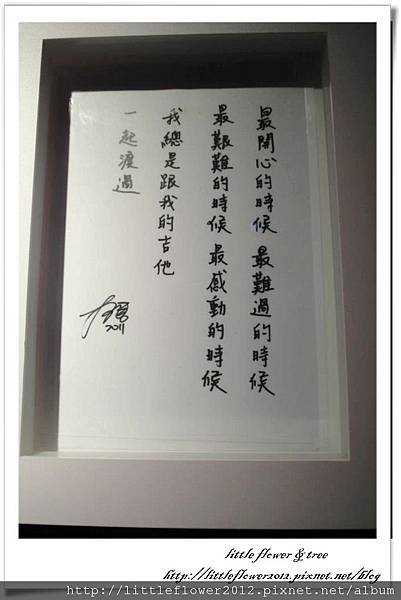 最開心的時候 最難過的時候
最艱難的時候 最感動的時候
我總是跟我的吉他
一起渡過
2011
little flower & tree
http://littleflower2012.pixnet.net/blog
http://littleflower2012.pixnet.net/album